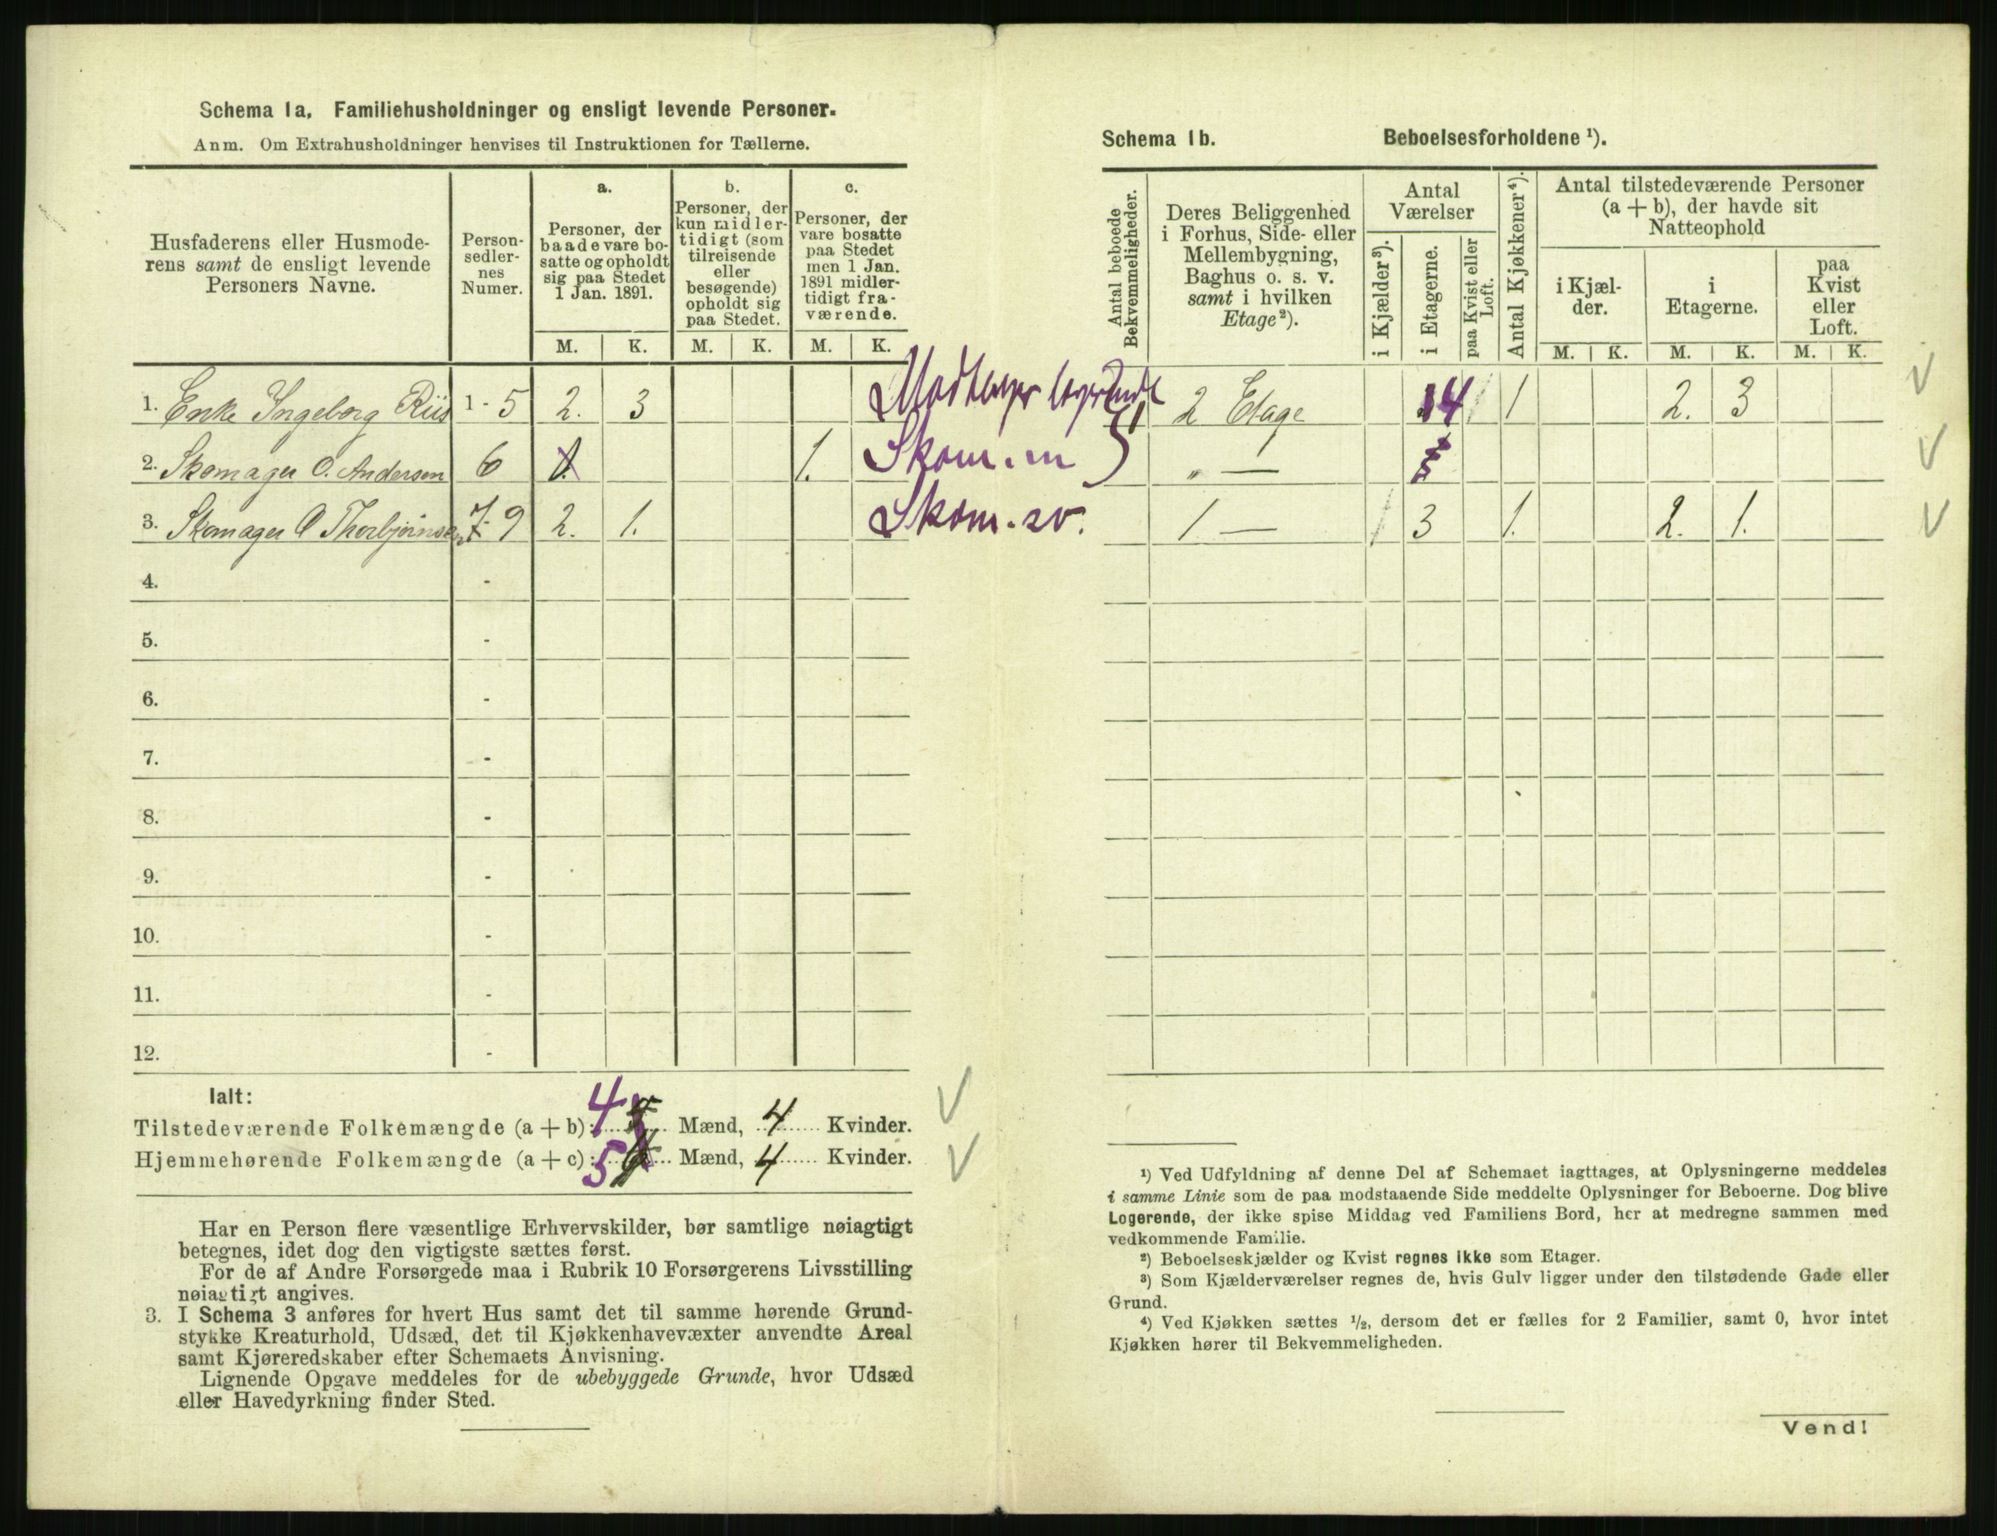 Schema 1a. Familiehusholdninger og ensligt levende Personer.
Anm. Om Extrahusholdninger henvises til Instruktionen for Tællerne.
Husfaderens eller Husmode-
rens samt de ensligt levende
Personers Navne.
Person-
sedler-
nes
Numer.
a.
Personer, der
baade vare bo-
satte og opholdt
sig paa Stedet
1 Jan. 1891.
b.
Personer, der
kun midler-
tidigt (som
tilreisende
eller
besøgende)
opholdt sig
paa Stedet.
c.
Personer, der
vare bosatte
paa Stedet
men 1 Jan.
1891 midler-
tidigt fra-
værende.
M. K. M. K. M. K.
1. Enke Ingeborg Riis 1 - 5 2. 3
2. Skomager O. Andersen 6 1. 1. Skom. m
3. Skomager O Thorbjørnsen 7-9 2. 1. Skom. sv.
4. -
5. -
6. -
7. -
8. -
9. -
10. -
11. -
12. -
Ialt:
Tilstedeværende Folkemængde (a + b): 4 5 Mænd, 4 Kvinder.
Hjemmehørende Folkemængde (a + c): 5 Mænd, 4 Kvinder.
Har en Person flere væsentlige Erhvervskilder, bør samtlige nøiagtigt
betegnes, idet dog den vigtigste sættes først.
For de af Andre Forsørgede maa i Rubrik 10 Forsørgerens Livsstilling
nøiagtigt angives.
3. I Schema 3 anføres for hvert Hus samt det til samme hørende Grund-
stykke Kreaturhold, Udsæd, det til Kjøkkenhavevæxter anvendte Areal
samt Kjøreredskaber efter Schemaets Anvisning.
Lignende Opgave meddeles for de ubebyggede Grunde, hvor Udsæd
eller Havedyrkning finder Sted.
Schema 1b. Beboelsesforholdene ¹).
Antal beboede
Bekvemmeligheder.
Deres Beliggenhed
i Forhus, Side- eller
Mellembygning,
Baghus o. s. v.
samt i hvilken
Etage²).
Antal
Værelser
i Kjælder³).
i Etagerne.
paa Kvist eller
Loft.
Antal Kjøkkener⁴).
Antal tilstedeværende Personer
(a + b), der havde sit
Natteophold
i Kjæl-
der.
i
Etagerne.
paa
Kvist
eller
Loft.
M. K. M. K. M. K.
1 2 Etage 4 1 2. 3
" —
1 — 3 1. 2. 1.
¹) Ved Udfyldning af denne Del af Schemaet iagttages, at Oplysningerne meddeles
i samme Linie som de paa modstaaende Side meddelte Oplysninger for Beboerne. Dog blive
Logerende, der ikke spise Middag ved Familiens Bord, her at medregne sammen med
vedkommende Familie.
²) Beboelseskjælder og Kvist regnes ikke som Etager.
³) Som Kjælderværelser regnes de, hvis Gulv ligger under den tilstødende Gade eller
Grund.
⁴) Ved Kjøkken sættes ½, dersom det er fælles for 2 Familier, samt 0, hvor intet
Kjøkken hører til Bekvemmeligheden.
Vend!